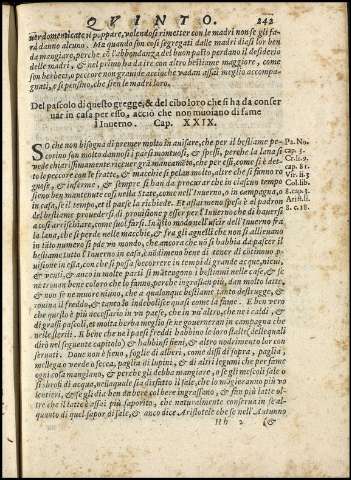 QVINTO. 242
uer domenticate il poppare, volendosi rimetter con le madri non se gli fa
rà danno alcuno. Ma quando son cosi segregati dalle madri diasi lor ben
da mangiare, perche cō l'abbondanza del buon pasto perdano il desiderio
delle madri, & nel primo ha da ire con altro bestiame maggiore, come
son berbeci, o peccore non grande accioche vadan assai meglio accompa
gnati, e si pensino, che sien le madri loro.
Del pascolo di questo gregge, & del cibo loro che si ha da conser
uar in casa per esso, accio che non muoiano di fame
l'Inuerno. Cap. XXIX.
SO che non bisogna di premer molto in auisare, che per il bestiame pe-
corino son molto dannosi i pasti montuosi, & spessi, perche la lana si
vede chiarissimamente riceuer grā mancamēto, che per essi, come si è det
to le peccore con le frate, & macchie si pelan molto, altre che si fanno ro
gnose, & inferme, & sempre si han da procurar che in ciascun tempo
sieno ben mantenute cosi nella State, come nell'Inuerno, o in campagna, o
in casa, se il tempo, et il paese la richiede. Et assai meno spesa è al padron
del bestiame prouedersi di prouisione per esser per l'Inuerno che di hauersi
a costar risichiare, come suol farsi. In questo modo nell'uscir dell'Inuerno fra
la lana, che se perde nelle macchie, & fra gli agnelli che non si alleuano
in tāto numero si pde vn mondo, che ancora che uō si habbia da pascer il
bestiame tutto l'Inuerno in casa, nōdimeno bene di tener di cōtinuo p
uisione in essa, con che si possa soccorrere in tempi di grande acque, neue,
& venti, & anco in molte parti si mātengono i bestiami nelle case, & si
netriron bene coloro che lo fanno, perche ingrassan più, dan molto latte,
& non si ne muore niuno, che a qualunque bestiame tanto destrugge, &
rouina il freddo, & tanto lo indebolisce quasi come la fame. E ben vero
che questo è più accessario in vn paese, che in vn'altro, che ne i caldi, &
di grassi pascoli, et molta herba meglio se ne gouernerā in campagna che
nelle sterili. E bene che ne i paesi freddi habbino le loro stalle (delle quali
dirò nel seguente capitolo) & habbin fieni, & altro nodrimento lor con
seruati. Doue non è fieno, foglie di alberi, come dissi di sopra, paglia,
mellega o verde o secca, paglia di lupini, & di altri legumi che per fame
ogni cosa mangiano, & perche gli debba mangiare, o se gli mescoli sale o
si sbrofi di acqua, nella quale sia disfatto il sale, che lo māgieran più vo
lentieri, & se gli dia ben da bere col bere ingrassano, & fan più latte ol-
tre che il latte è assai più saporito, che naturalmente conserua in se al-
quanto di quel sapor di sale, & anco dice Aristotele che se nell'Autunno
Hh 2 (&
Pa. No.
cap. 5.
Cr. li. 9.
cap. 81.
Vir. li. 3
Col. lib.
Aristoli
8. c. 18.